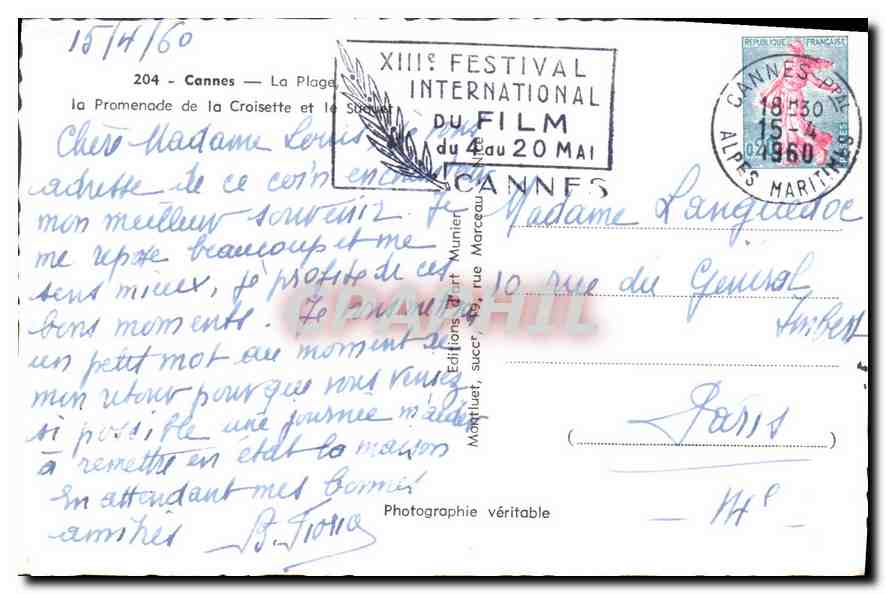 15/4/60
204 - Cannes — La Plage,
la Promenade de la Croisette et le Suquet
XIIIe FESTIVAL
INTERNATIONAL
DU FILM
du 4 au 20 MAI
CANNES
REPUBLIQUE FRANÇAISE
CANNES PPAL
18H30
15-4
1960
ALPES MARITIMES
Chère Madame Louise Je vous
adresse de ce coin enchanteur
mon meilleur souvenir. Je
me repose beaucoup et me
sens mieux, je profite de ces
bons moments. Je
un petit mot au moment de
mon retour pour que vous veniez
si possible une journée m'aider
à remettre en état la maison
En attendant mes bonnes
amitiés
Editions d'art Munier
Montluet, succr, 49, rue Marceau Nice
Madame Languedoc
10 rue du General
Imbert
Paris
- 14e -
Photographie véritable
CPAPHIL